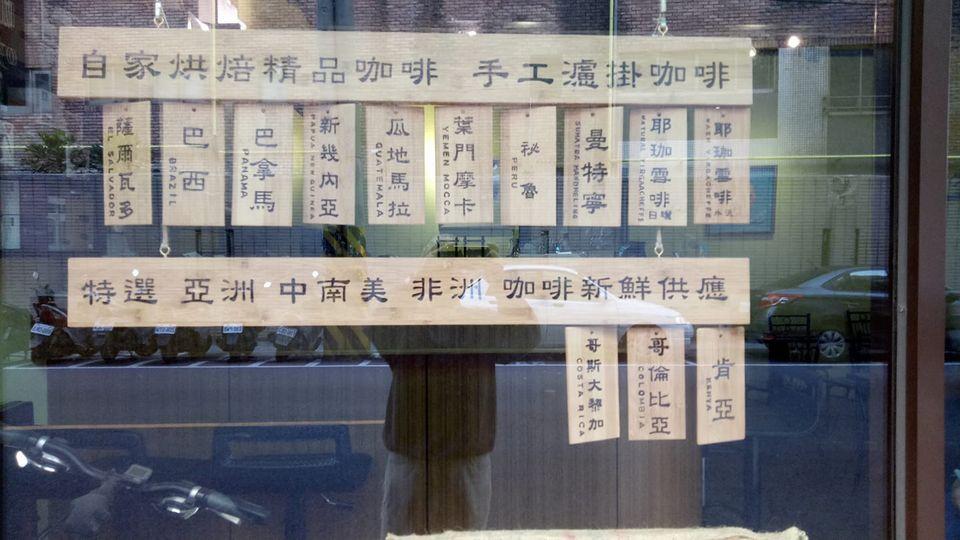 自家烘焙精品咖啡 手工濾掛咖啡
薩爾瓦多
EL SALVADOR
巴西
BRAZIL
巴拿馬
PANAMA
新幾內亞
PAPUA NEW GUINEA
瓜地馬拉
GUATEMALA
葉門摩卡
YEMEN MOCCA
祕魯
PERU
曼特寧
SUMATRA MANDHELING
耶珈雪啡
日曬
耶珈雪啡
水洗
特選 亞洲 中南美 非洲 咖啡新鮮供應
哥斯大黎加
COSTA RICA
哥倫比亞
COLOMBIA
肯亞
KENYA